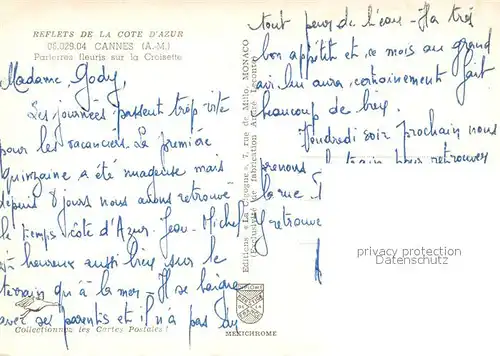 REFLETS DE LA COTE D'AZUR
06.029.04 CANNES (A.-M.)
Parterres fleuris sur la Croisette
Madame Gody,
Les journées passent trop vite
pour les vacanciers. La première
quinzaine a été nuageuse mais
depuis 8 jours nous avons retrouvé
le temps côte d'Azur. Jean-Michel
est heureux aussi bien sur le
terrain qu'à la mer - Il se baigne
avec ses parents et il n'a pas du
Collectionnez les Cartes Postales !
Editions « La Cigogne », 7, rue de Millo, MONACO
Exclusivité de fabrication André Leconte
MEXICHROME
tout peur de l'eau - Il a très
bon appétit et ce mois au grand
air lui aura certainement fait
beaucoup de bien.
Vendredi soir prochain nous
prenons le train pour retrouver
la rue
retrouve
privacy protection
Datenschutz